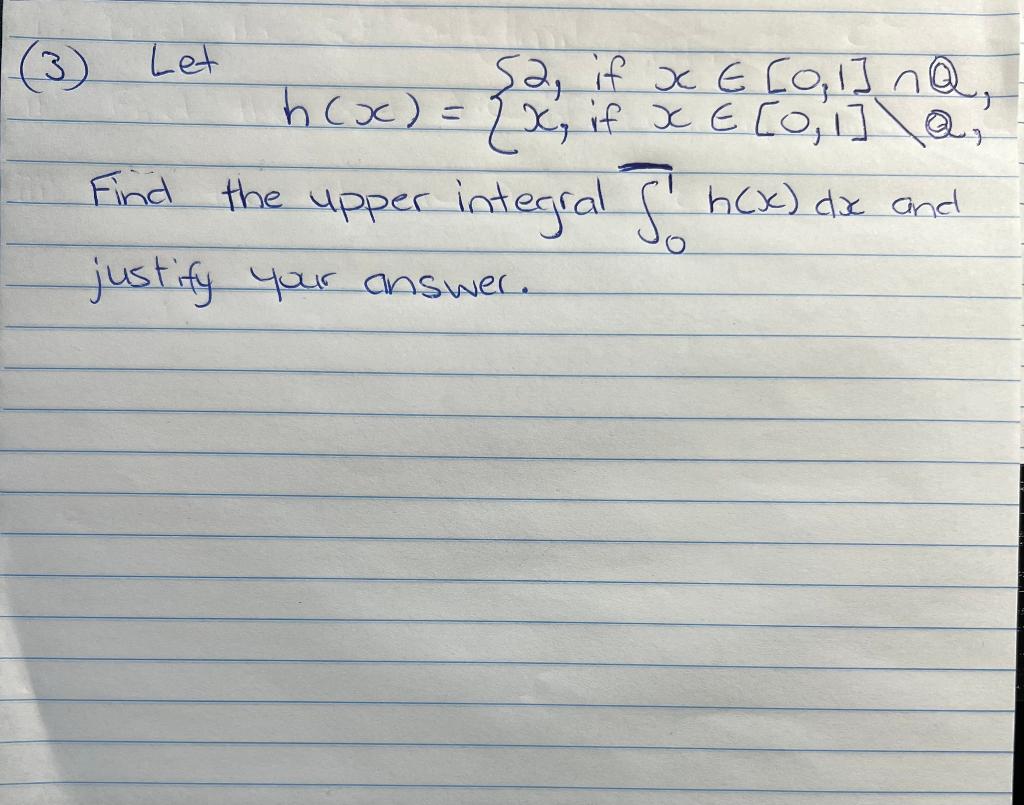 (3) Let
h(x) = { 2, if x ∈ [0,1] ∩ ℚ,
x, if x ∈ [0,1] \ ℚ,
Find the upper integral ∫̅₀¹ h(x) dx and
justify your answer.